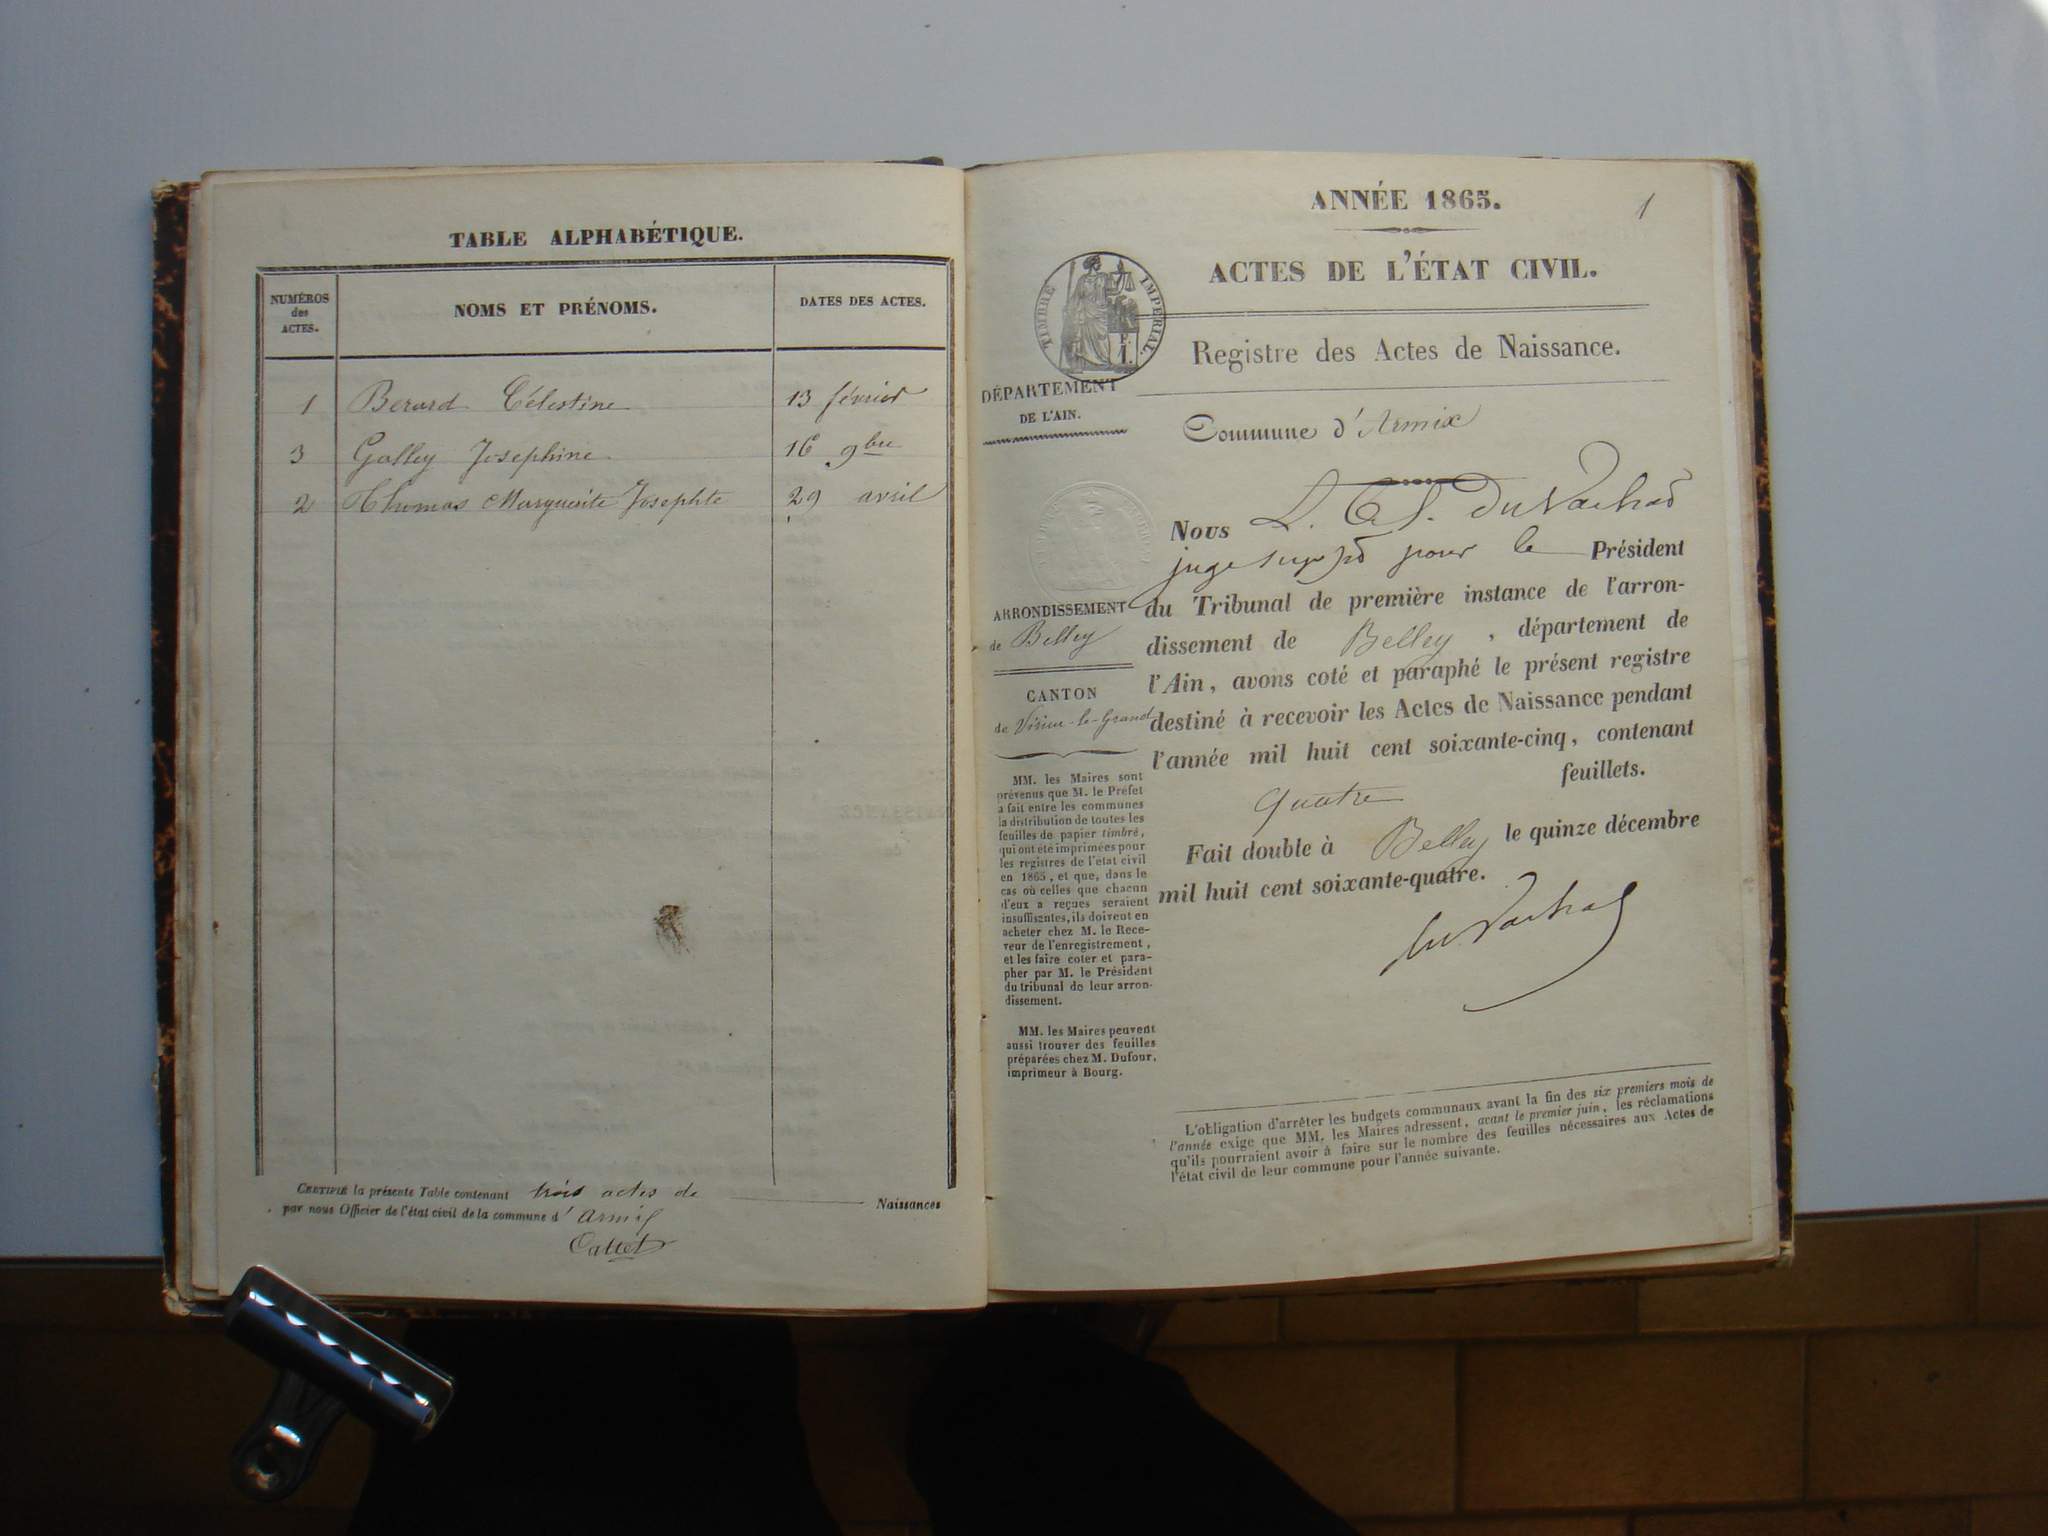 TABLE ALPHABÉTIQUE.
NUMÉROS des ACTES.
NOMS ET PRÉNOMS.
DATES DES ACTES.
1 Berard Célestine 13 février
3 Galley Josephine 16 9bre
2 Thomas Marguerite Josephte 29 avril
CERTIFIÉ la présente Table contenant trois actes de Naissances
par nous Officier de l'état civil de la commune d' Armix
Callet
ANNÉE 1865.
1
ACTES DE L'ÉTAT CIVIL.
TIMBRE IMPÉRIAL.
Registre des Actes de Naissance.
DÉPARTEMENT
DE L'AIN.
Commune d'Armix
ARRONDISSEMENT
de Belley
CANTON
de Virieu-le-Grand
MM. les Maires sont
prévenus que M. le Préfet
a fait entre les communes
la distribution de toutes les
feuilles de papier timbré,
qui ont été imprimées pour
les registres de l'état civil
en 1865, et que, dans le
cas où celles que chacun
d'eux a reçues seraient
insuffisantes, ils doivent en
acheter chez M. le Rece-
veur de l'enregistrement,
et les faire coter et para-
pher par M. le Président
du tribunal de leur arron-
dissement.
MM. les Maires peuvent
aussi trouver des feuilles
préparées chez M. Dufour,
imprimeur à Bourg.
Nous L.
juge pour le Président
du Tribunal de première instance de l'arron-
dissement de Belley, département de
l'Ain, avons coté et paraphé le présent registre
destiné à recevoir les Actes de Naissance pendant
l'année mil huit cent soixante-cinq, contenant
quatre feuillets.
Fait double à Belley le quinze décembre
mil huit cent soixante-quatre.
L'obligation d'arrêter les budgets communaux avant la fin des six premiers mois de
l'année exige que MM. les Maires adressent, avant le premier juin, les réclamations
qu'ils pourraient avoir à faire sur le nombre des feuilles nécessaires aux Actes de
l'état civil de leur commune pour l'année suivante.